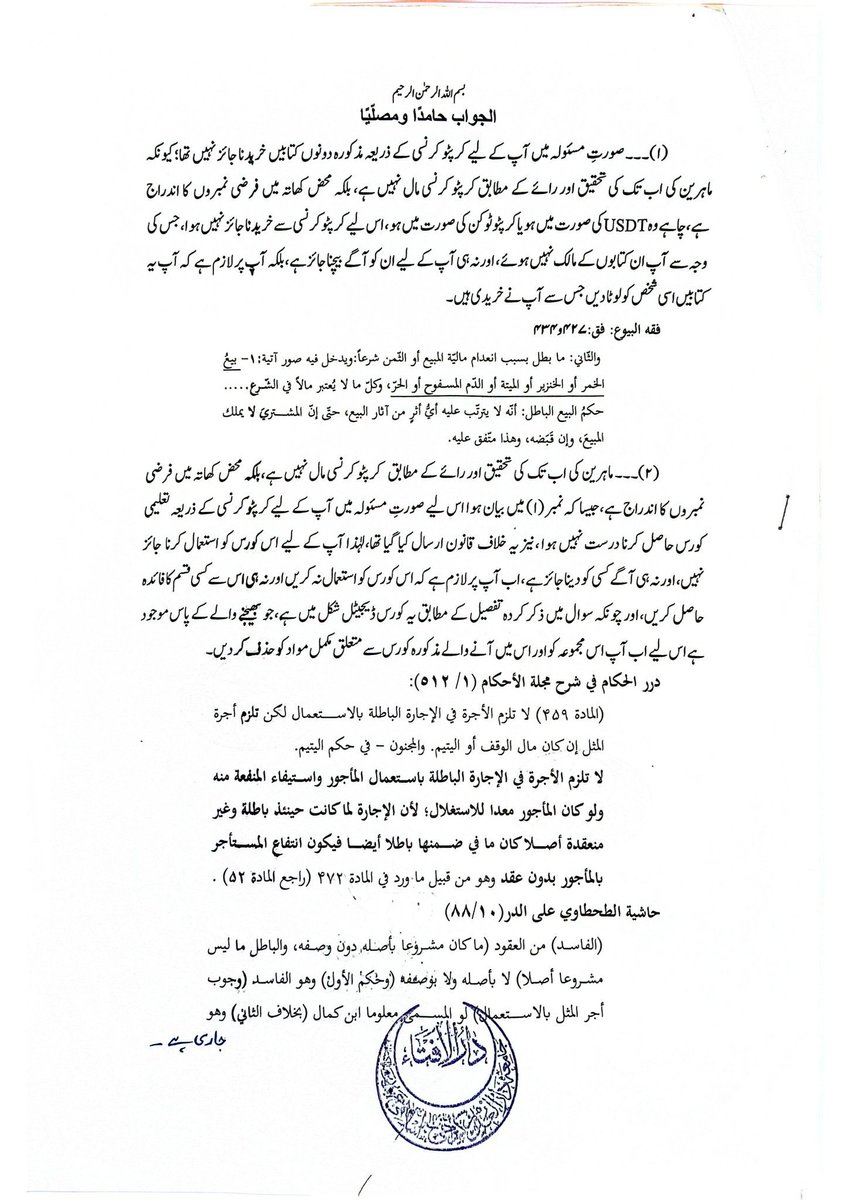 بسم اللہ الرحمٰن الرحیم
الجواب حامدًا ومصلّیًا
(۱)۔۔۔ صورتِ مسئولہ میں آپ کے لیے کرپٹو کرنسی کے ذریعہ مذکورہ دونوں کتابیں خریدنا جائز نہیں تھا؛ کیونکہ
ماہرین کی اب تک کی تحقیق اور رائے کے مطابق کرپٹو کرنسی مال نہیں ہے، بلکہ محض کھاتہ میں فرضی نمبروں کا اندراج
ہے، چاہے وہ USDT کی صورت میں ہو یا کرپٹو ٹوکن کی صورت میں ہو، اس لیے کرپٹو کرنسی سے خریدنا جائز نہیں ہوا، جس کی
وجہ سے آپ ان کتابوں کے مالک نہیں ہوئے، اور نہ ہی آپ کے لیے ان کو آگے بیچنا جائز ہے، بلکہ آپ پر لازم ہے کہ آپ یہ
کتابیں اسی شخص کو لوٹا دیں جس سے آپ نے خریدی ہیں۔
فقه البيوع: فق: ۴۲۷ و ۴۳۴
والثّاني: ما بطل بسبب انعدام ماليّة المبيع أو الثّمن شرعاً: ويدخل فيه صور آتية: ۱- بيعُ
الخمر أو الخنزير أو الميتة أو الدّم المسفوح أو الحرّ، وكلّ ما لا يُعتبر مالاً في الشّرع.....
حكمُ البيع الباطل: أنّه لا يترتّب عليه أيُّ أثرٍ من آثار البيع، حتّى إنّ المشتريَ لا يملك
المبيعَ، وإن قَبَضه، وهذا متّفق عليه.
(۲)۔۔۔ ماہرین کی اب تک کی تحقیق اور رائے کے مطابق کرپٹو کرنسی مال نہیں ہے، بلکہ محض کھاتہ میں فرضی
نمبروں کا اندراج ہے، جیسا کہ نمبر (۱) میں بیان ہوا اس لیے صورتِ مسئولہ میں آپ کے لیے کرپٹو کرنسی کے ذریعہ تعلیمی
کورس حاصل کرنا درست نہیں ہوا، نیز یہ خلاف قانون ارسال کیا گیا تھا، لہٰذا آپ کے لیے اس کورس کو استعمال کرنا جائز
نہیں، اور نہ ہی آگے کسی کو دینا جائز ہے، اب آپ پر لازم ہے کہ اس کورس کو استعمال نہ کریں اور نہ ہی اس سے کسی قسم کا فائدہ
حاصل کریں، اور چونکہ سوال میں ذکر کردہ تفصیل کے مطابق یہ کورس ڈیجیٹل شکل میں ہے، جو بھیجنے والے کے پاس موجود
ہے اس لیے اب آپ اس مجموعہ کو اور اس میں آنے والے مذکورہ کورس سے متعلق مکمل مواد کو حذف کر دیں۔
درر الحكام في شرح مجلة الأحكام (۱/ ۵۱۲):
(المادة ۴۵۹) لا تلزم الأجرة في الإجارة الباطلة بالاستعمال لكن تلزم أجرة
المثل إن كان مال الوقف أو اليتيم. والمجنون – في حكم اليتيم.
لا تلزم الأجرة في الإجارة الباطلة باستعمال المأجور واستيفاء المنفعة منه
ولو كان المأجور معدا للاستغلال؛ لأن الإجارة لما كانت حينئذ باطلة وغير
منعقدة أصلا كان ما في ضمنها باطلا أيضا فيكون انتفاع المستأجر
بالمأجور بدون عقد وهو من قبيل ما ورد في المادة ۴۷۲ (راجع المادة ۵۲) .
حاشية الطحطاوي على الدر(۸۸/۱۰)
(الفاسد) من العقود (ما كان مشروعا بأصله دون وصفه، والباطل ما ليس
مشروعا أصلا) لا بأصله ولا بوصفه (وحكم الأول) وهو الفاسد (وجوب
أجر المثل بالاستعمال) لو المسمى معلوما ابن كمال (بخلاف الثاني) وهو
جاری ہے ۔
دار الافتاء